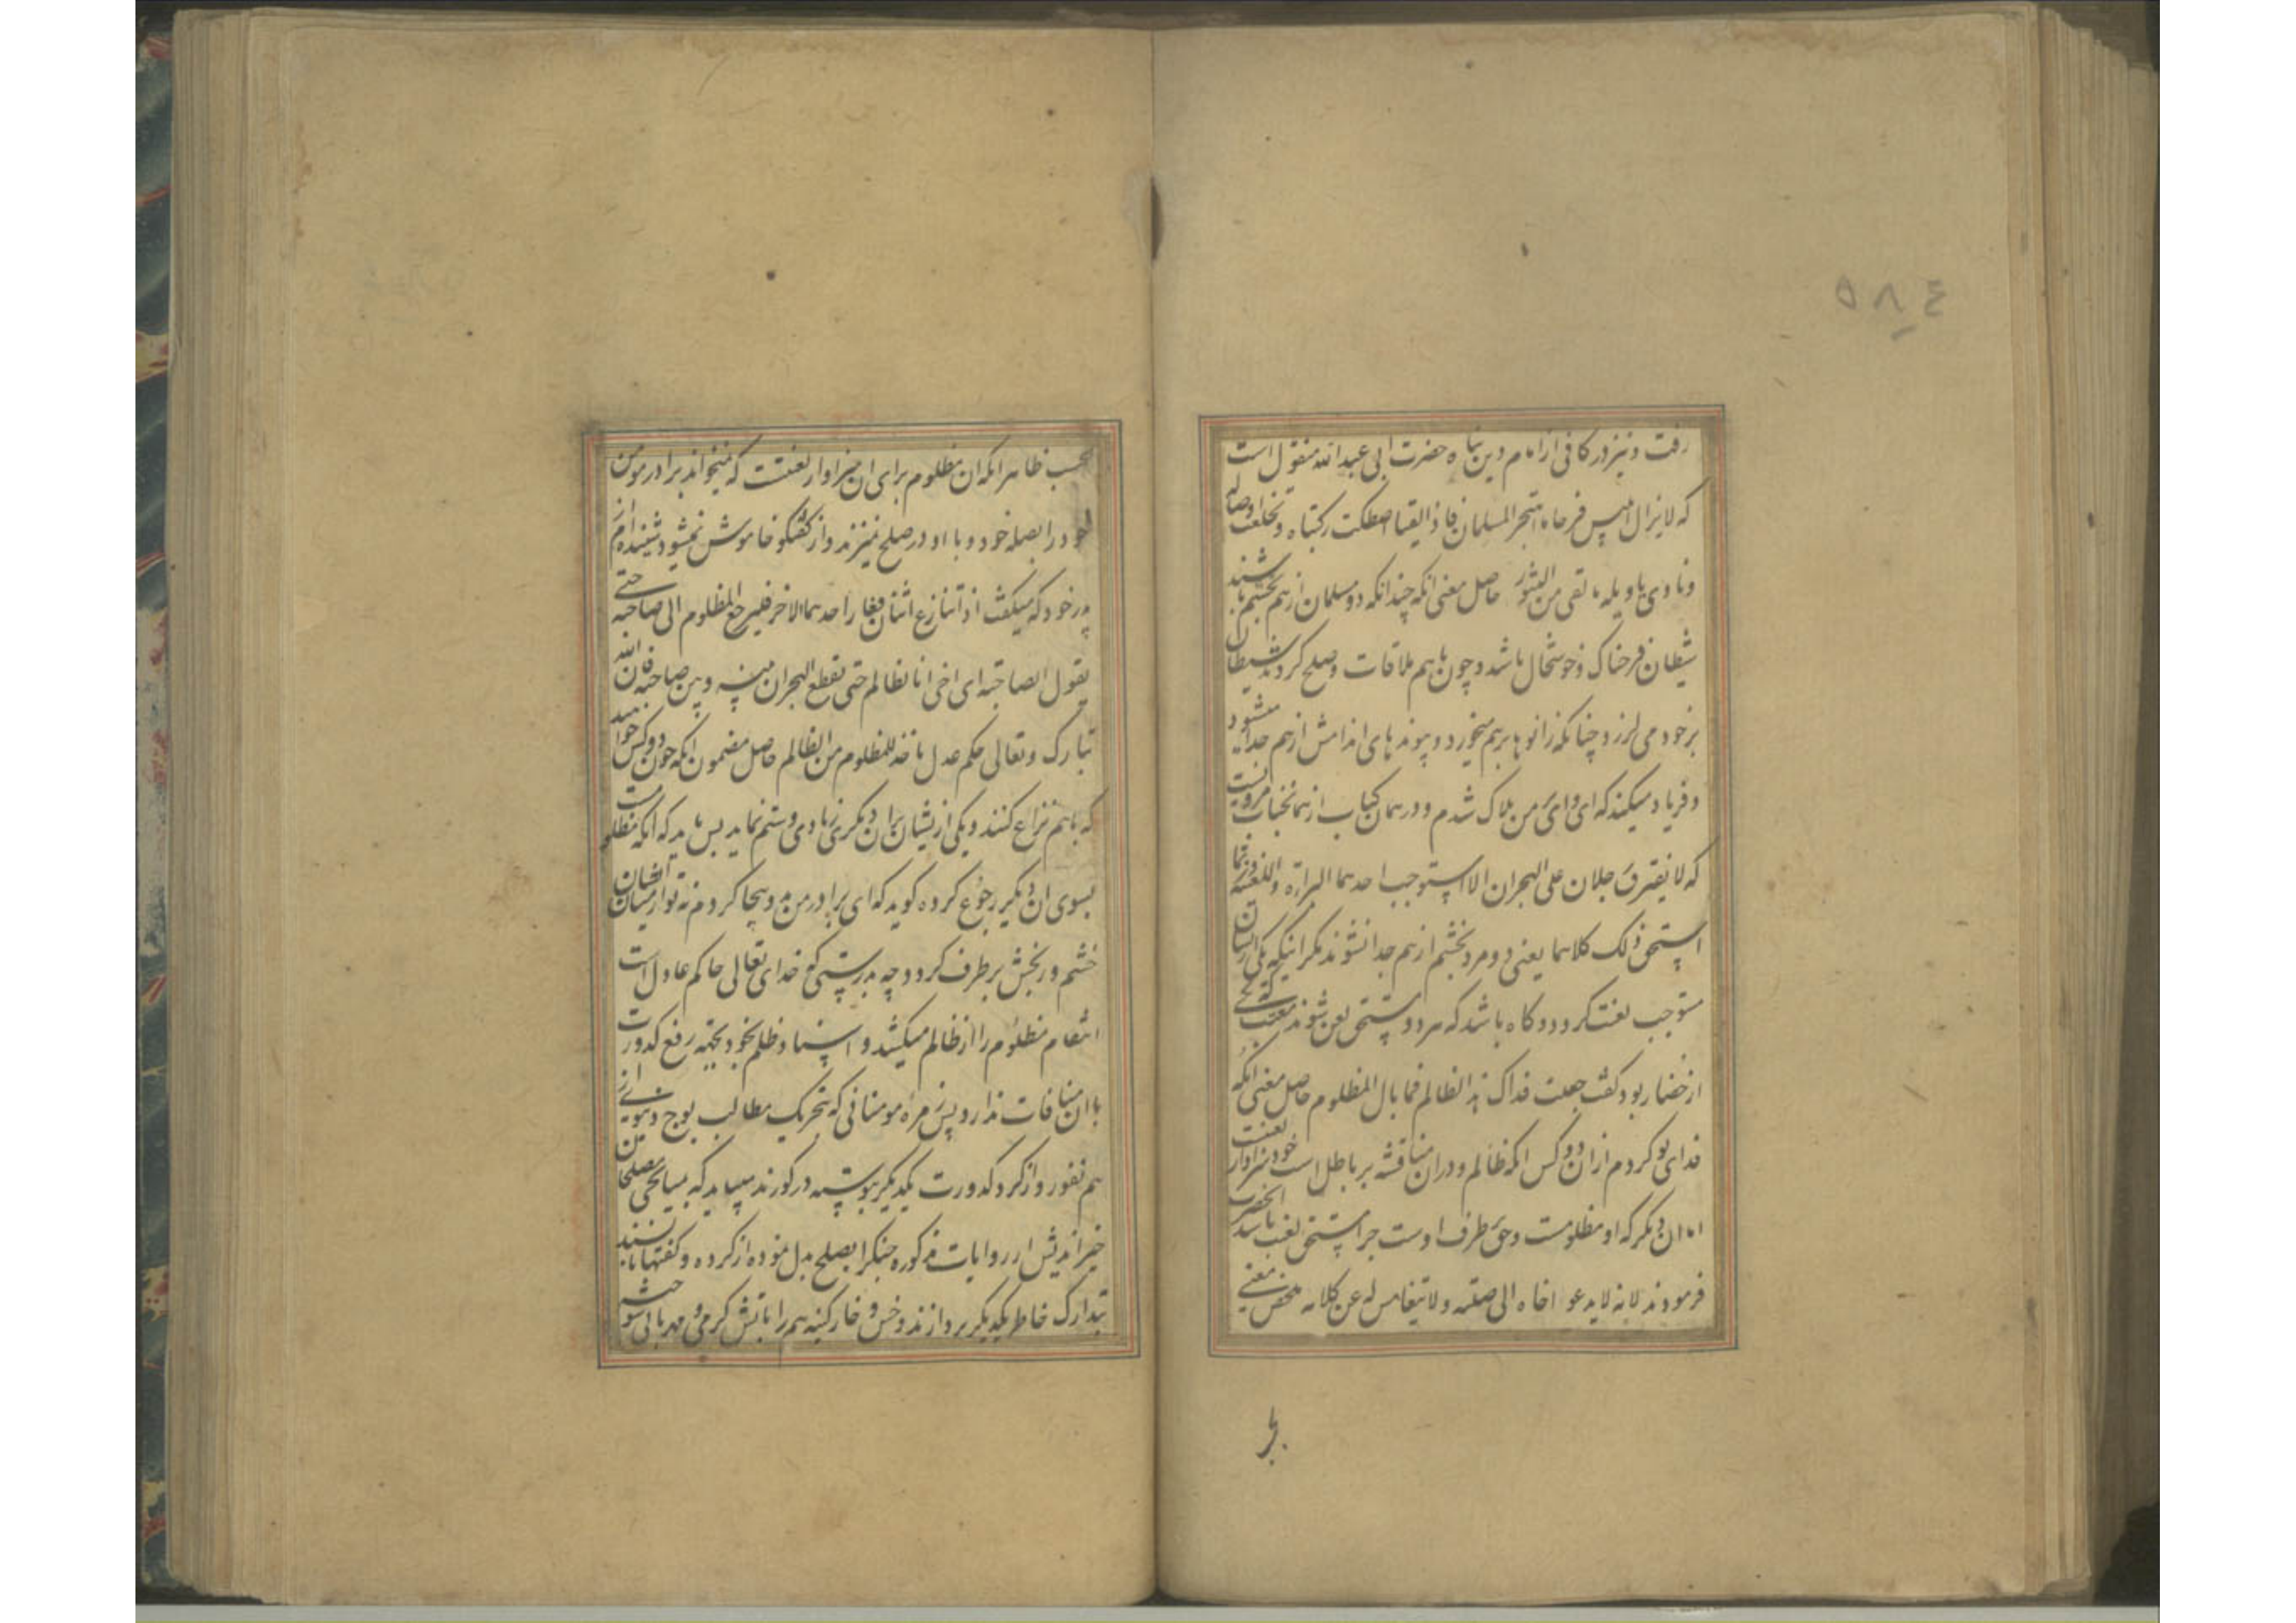 ٥٨٤
رفت و نیز در کافی از امام دین پناه حضرت ابی عبدالله منقول است
که لایزال ابلیس فرحا ما اهتجر المسلمان فاذا التقیا اصطکت رکبتاه و تخلعت اوصاله
و نادی یا ویله ما لقی من الثبور حاصل معنی انکه چندانکه دو مسلمان از هم بخشم باشند
شیطان فرحناک و خوشحال باشد و چون باهم ملاقات و صلح کردند شیطان
بر خود می لرزد چنانکه زانوها بر هم میخورد و پیوندهای اندامش از هم جدا میشود
و فریاد میکند که ای وای من هلاک شدم و در همان کتاب از همانجناب مرویست
که لا یفترق رجلان علی الهجران الا استوجب احدهما البراءة و اللعنة و ربما
استحق ذلک کلاهما یعنی دو مرد بخشم از هم جدا نشوند مگر اینکه یکی از ایشان
مستوجب لعنت کردد و کاه باشد که هر دو مستحق لعن شوند معتب که یکی
از حضار بود کفت جعلت فداک هذا الظالم فما بال المظلوم حاصل معنی انکه
فدای تو کردم از ان دو کس انکه ظالم و در ان مناقشه بر باطل است خود سزاوار لعنت
اما ان دیکر که او مظلومست و حق طرف اوست چرا مستحق لعن باشد انحضرت
فرمودند لانه لا یدعو اخاه الی صلته و لا یتغامس له عن کلامه ملخص معنی
بحسب ظاهر انکه ان مظلوم برای ان سزاوار لعنتست که نمیخواند برادر مومن
خود را بصله خود و با او در صلح نمیزند و از کفتکو خاموش نمیشود شنیده ام از
پدر خود که میکفت اذا تنازع اثنان فعاز احدهما الاخر فلیرجع المظلوم الی صاحبه حتی
یقول لصاحبه ای اخی انا الظالم حتی یقطع الهجران بینه و بین صاحبه فان الله
تبارک و تعالی حکم عدل یاخذ للمظلوم من الظالم حاصل مضمون انکه چون دو کس خواهند
که باهم نزاع کنند و یکی از ایشان بران دیکری زیادی و ستم نماید پس باید که انکه مظلومست
بسوی ان دیکر رجوع کرده کوید که ای برادر من بد و بیجا کردم نه تو از میان ایشان
خشم و رنجش برطرف کردد چه بدرستی که خدای تعالی حاکم عادل است
انتقام مظلوم را از ظالم میکشد و اسناد ظلم بخود بجهته رفع کدورت
با ان منافات ندارد پس مر مومنانی که بتحریک مطالب پوچ دنیوی از
هم نفور و از کرد کدورت یکدیکر پیوسته در کورند میباید که بمیانجی مصلحان
خیراندیش از روایات مذکوره جنکرا بصلح بدل نموده از کرده و کفتها باید
بتدارک خاطر یکدیکر پردازند و خس و خار کینه هم را باتش کرمی و مهربانی بسوزند